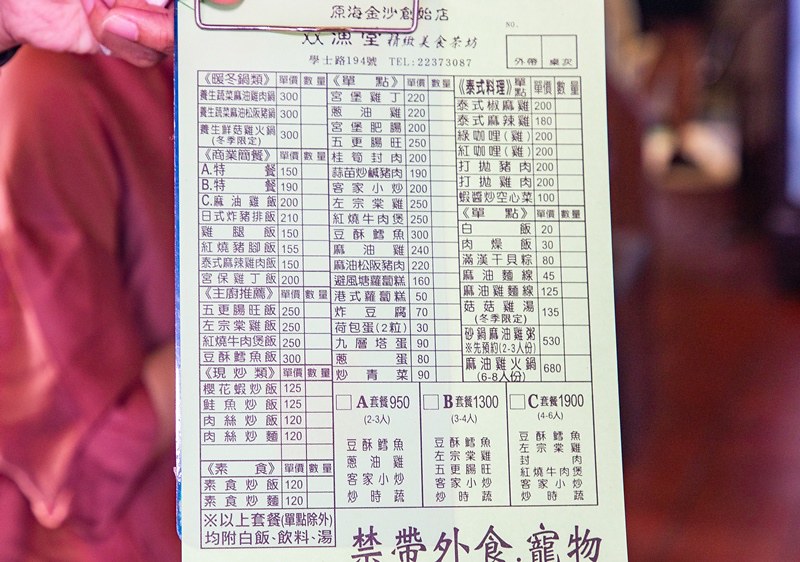 原海金沙創始店
双漁堂 精緻美食茶坊
NO.
學士路194號 TEL:22373087
外帶 桌次
《暖冬鍋類》 單價 數量
養生蔬菜麻油雞肉鍋 300
養生蔬菜麻油松阪豬鍋 300
養生鮮菇雞火鍋 300
(冬季限定)
《商業簡餐》 單價 數量
A.特餐 150
B.特餐 190
C.麻油雞飯 200
日式炸豬排飯 210
雞腿飯 150
紅燒豬腳飯 155
泰式麻辣雞肉飯 150
宮保雞丁飯 200
《主廚推薦》 單價 數量
五更腸旺飯 250
左宗棠雞飯 250
紅燒牛肉煲飯 250
豆酥鱈魚飯 300
《現炒類》 單價 數量
櫻花蝦炒飯 125
鮭魚炒飯 125
肉絲炒飯 120
肉絲炒麵 120
《素食》 單價 數量
素食炒飯 120
素食炒麵 120
※以上套餐(單點除外)
均附白飯、飲料、湯
《單點》 單價 數量
宮保雞丁 220
蔥油雞 220
宮保肥腸 200
五更腸旺 250
桂筍封肉 200
蒜苗炒鹹豬肉 190
客家小炒 200
左宗棠雞 250
紅燒牛肉煲 250
豆酥鱈魚 300
麻油雞 240
麻油松阪豬肉 220
避風塘蘿蔔糕 160
港式蘿蔔糕 50
炸豆腐 70
荷包蛋(2粒) 30
九層塔蛋 90
蔥蛋 80
炒青菜 90
《泰式料理》 單點 單價 數量
泰式椒麻雞 200
泰式麻辣雞 180
綠咖哩(雞) 200
紅咖哩(雞) 200
打拋豬肉 200
打拋雞肉 200
蝦醬炒空心菜 100
《單點》 單價 數量
白飯 20
肉燥飯 30
滿漢干貝粽 80
麻油麵線 45
麻油雞麵線 125
菇菇雞湯 135
(冬季限定)
砂鍋麻油雞粥 530
※先預約(2-3人份)
麻油雞火鍋 680
(6-8人份)
A套餐950
(2-3人)
豆酥鱈魚
蔥油雞
客家小炒
炒時蔬
B套餐1300
(3-4人)
豆酥鱈魚
左宗棠雞
五更腸旺
客家小炒
炒時蔬
C套餐1900
(4-6人)
豆酥鱈魚
左宗棠雞
封肉
紅燒牛肉煲
客家小炒
炒時蔬
禁帶外食.寵物